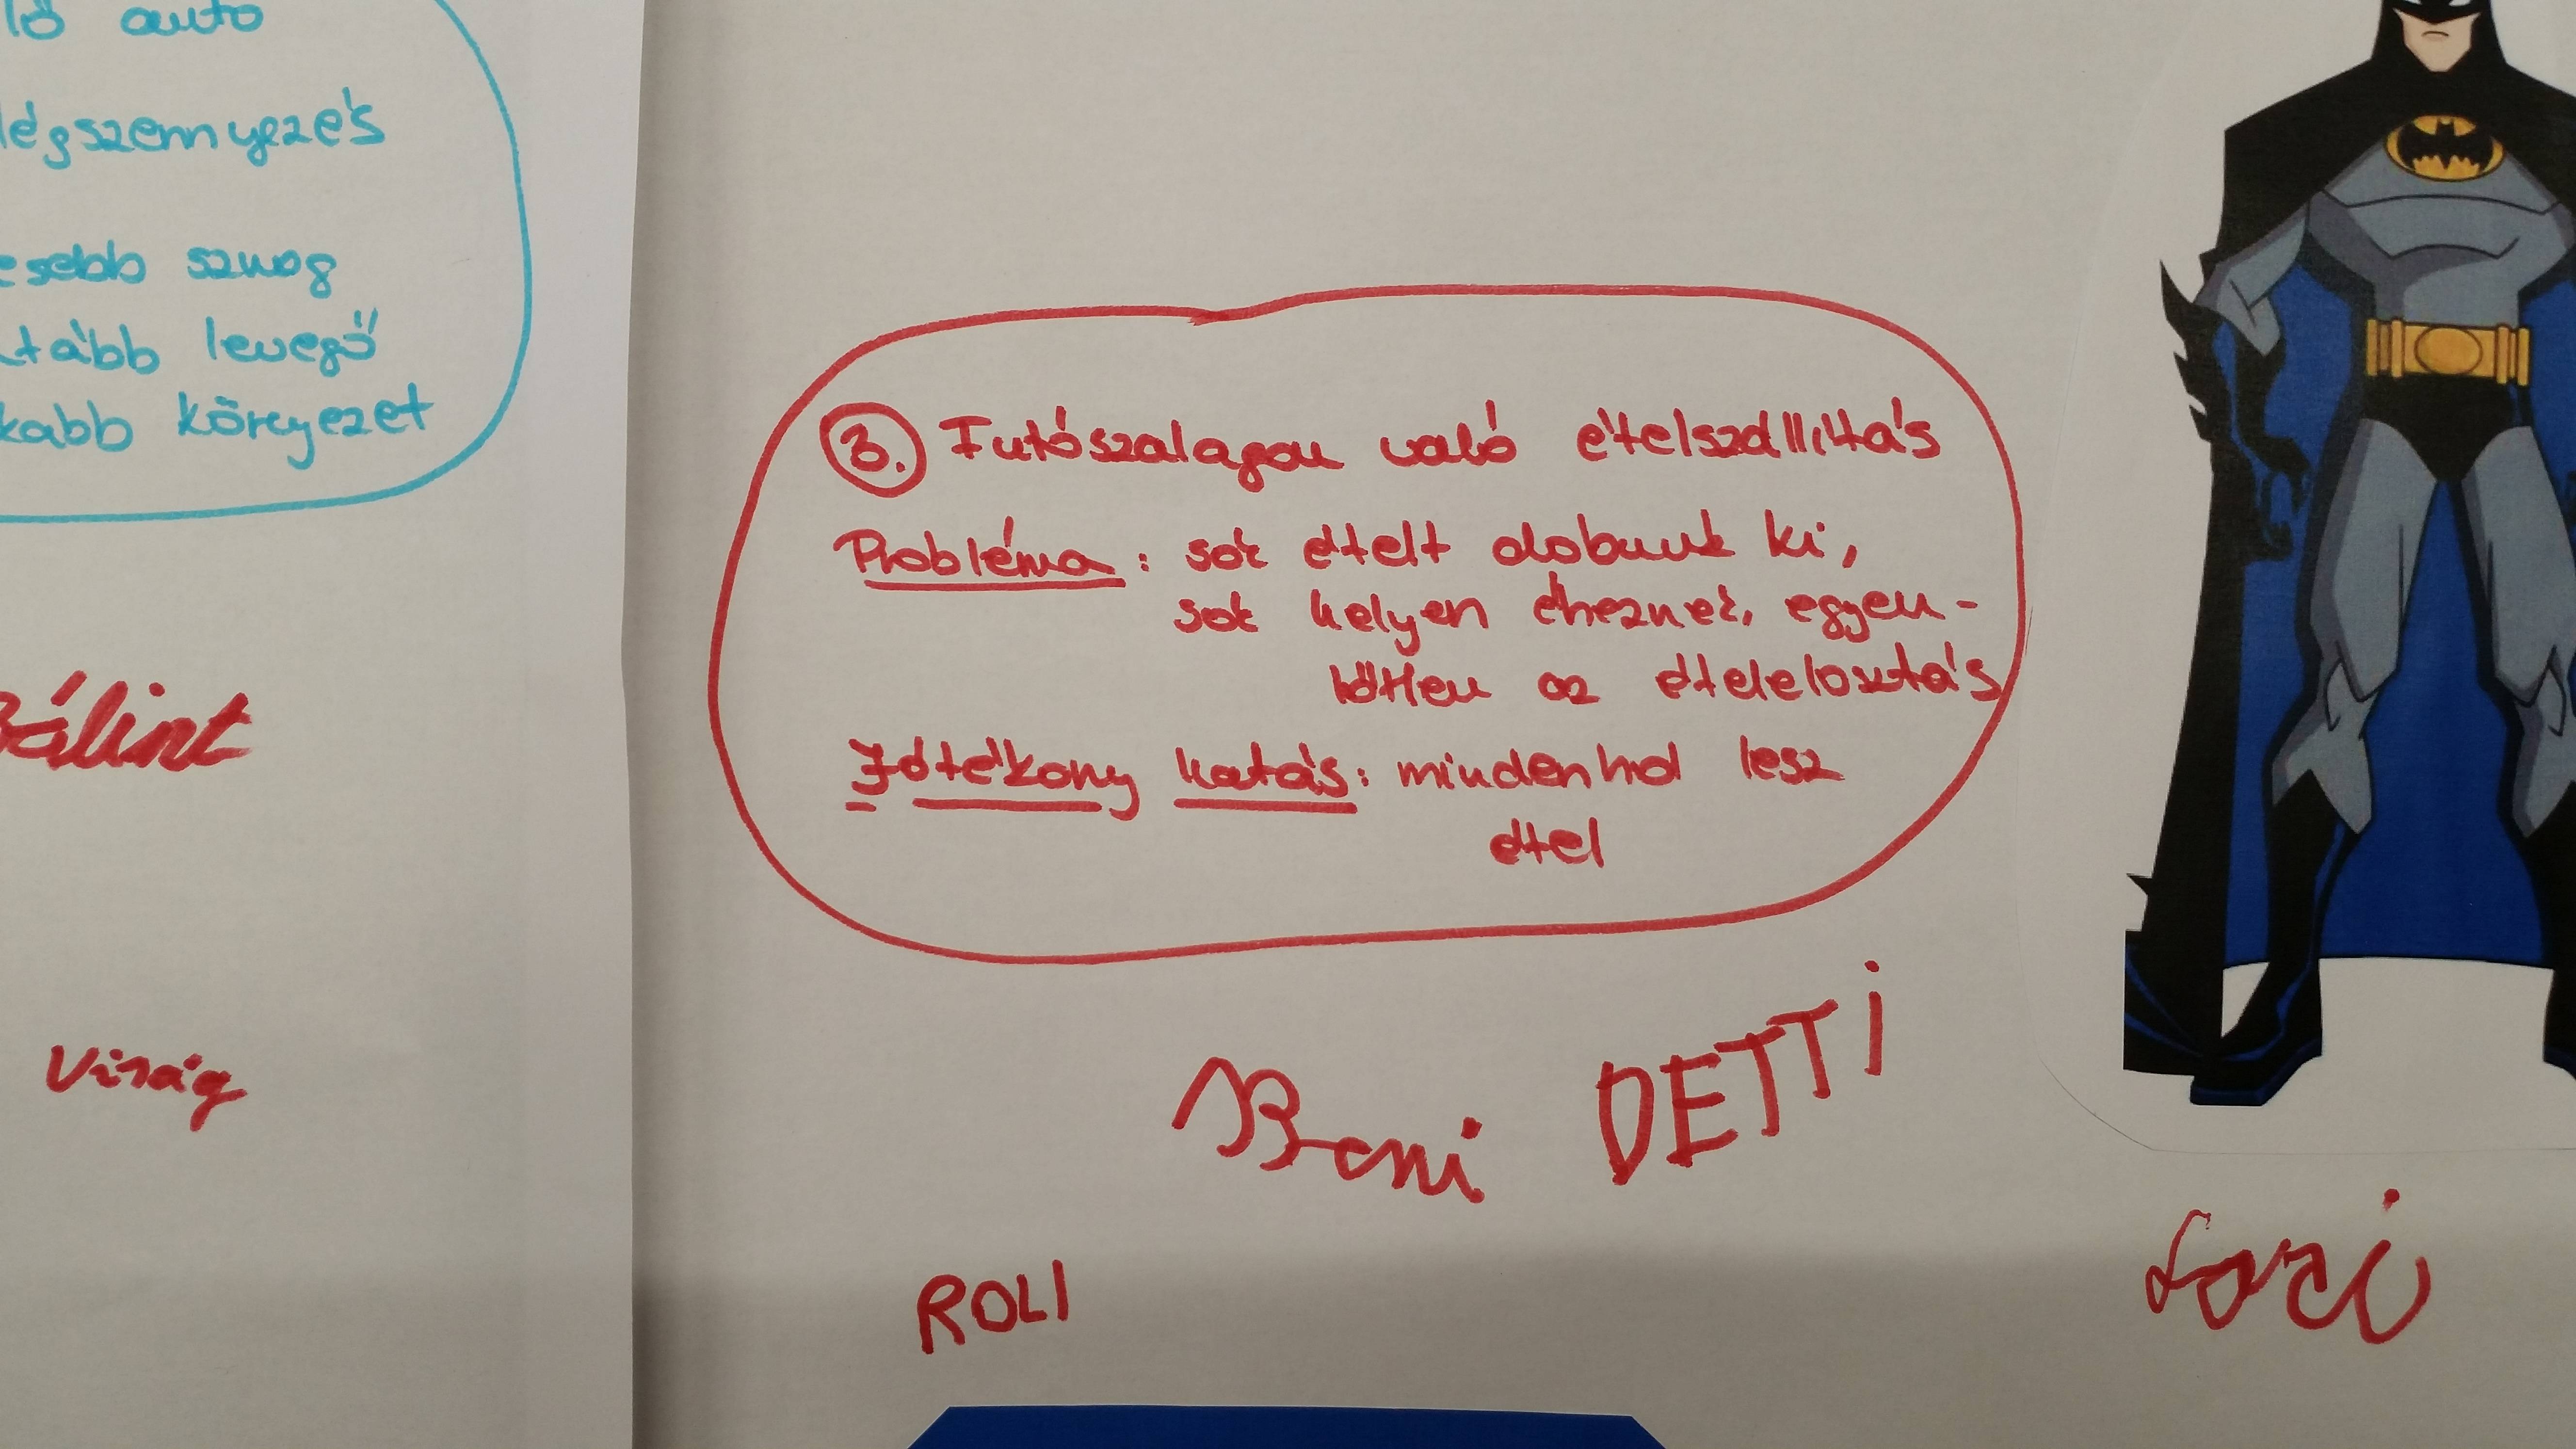 auto
légszennyezés
szmog
levegő
környezet
3. Futószalagon való ételszállítás
Probléma: sok ételt dobunk ki,
sok helyen éheznek, egyen-
lőtlen az ételelosztás
Jótékony hatás: mindenhol lesz
étel
Bálint
Virág
Beni DETTI
ROLI
Laci